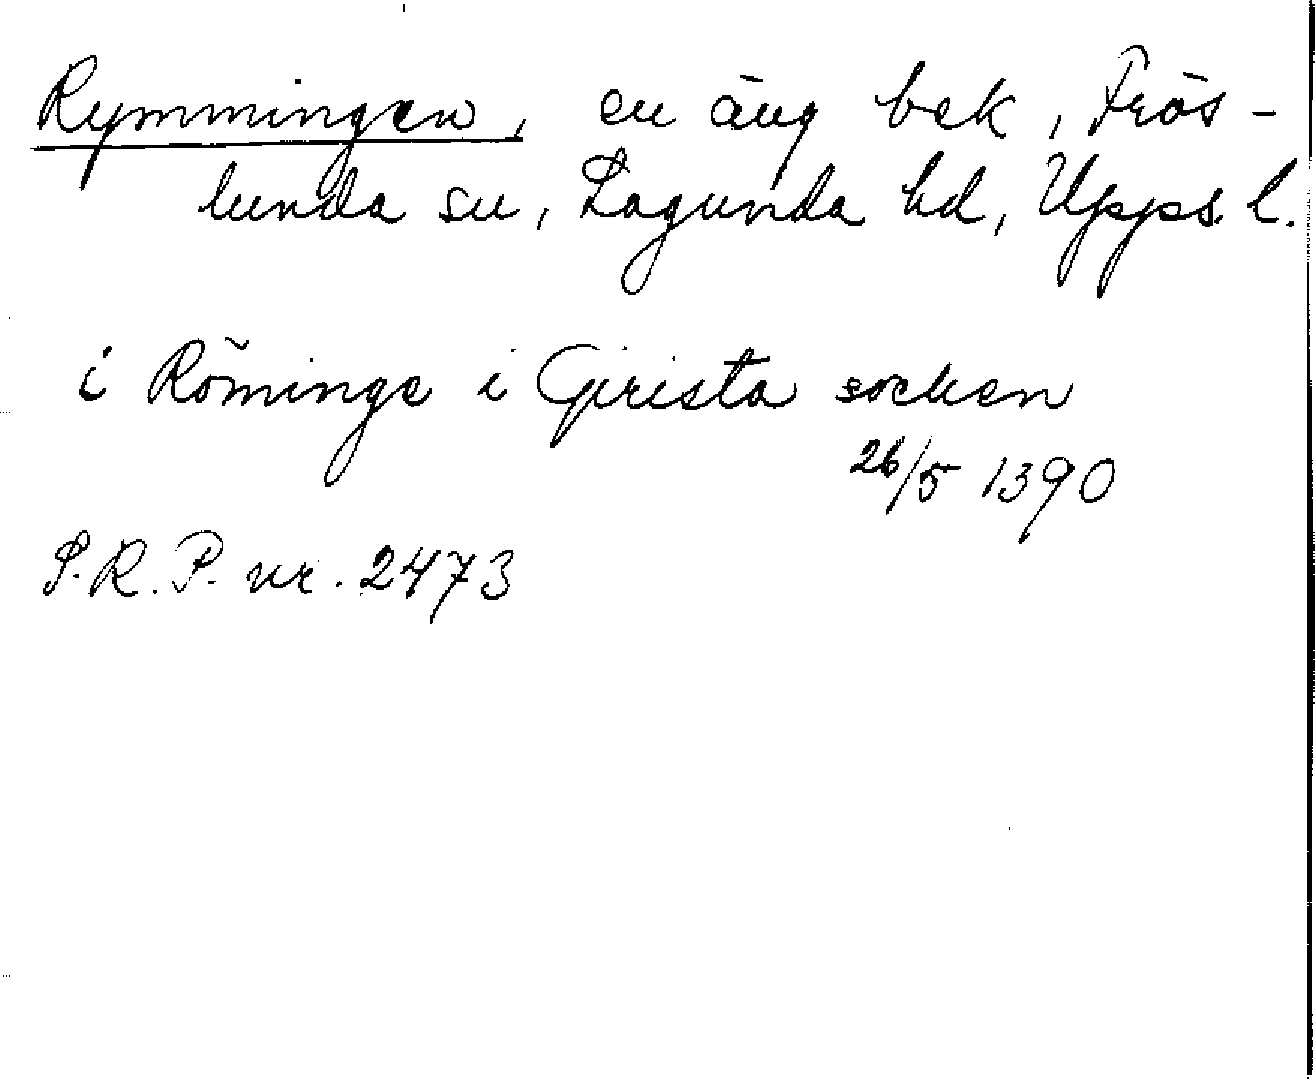 Rymmingen, en äng bek, Frös-
lunda sn, Lagunda hd, Upps. l.
i Röminge i Girista socken
26/5 1390
S.R.P. nr. 2473